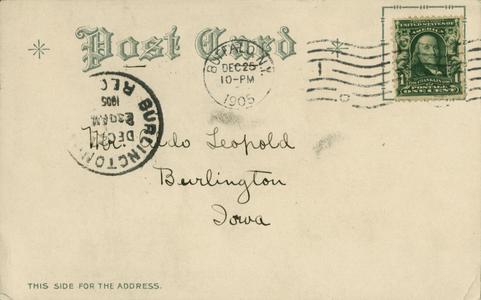 Post Card
BUFFALO, N.Y.
DEC 25
10-PM
1905
UNITED STATES OF AMERICA
FRANKLIN
POSTAGE
ONE CENT
BURLINGTON
REC'D
1905
DEC
AM
Mr. ldo Leopold
Burlington
Iowa
THIS SIDE FOR THE ADDRESS.